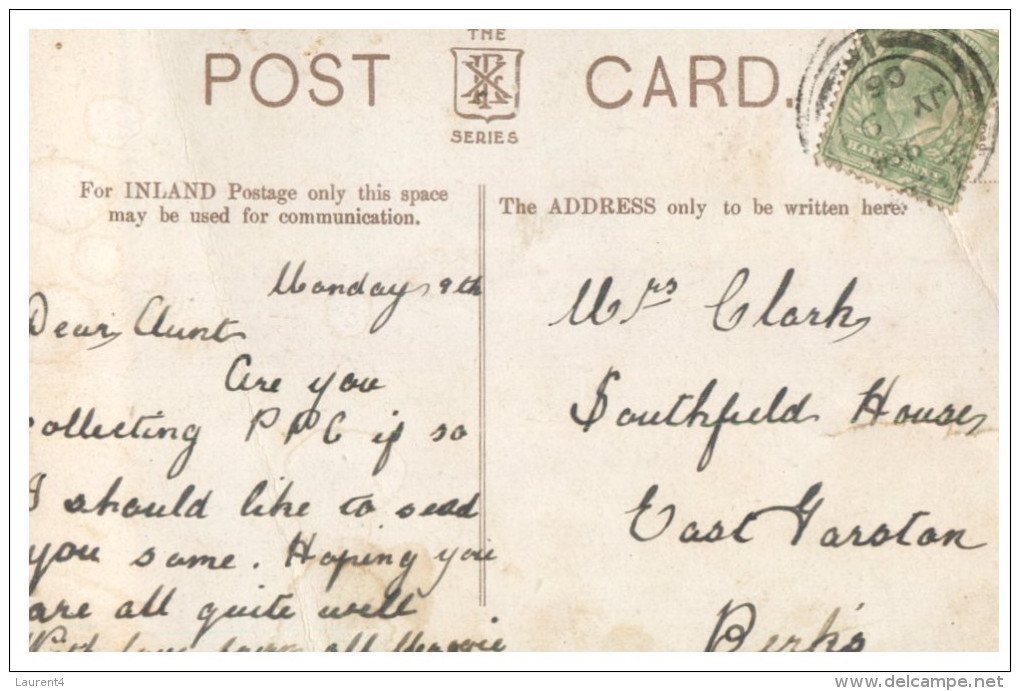 THE
POST CARD.
SERIES
For INLAND Postage only this space
may be used for communication.
The ADDRESS only to be written here.
Monday 9th
Dear Aunt
Are you
collecting PPC if so
I should like to send
you some. Hoping you
are all quite well
With love from all
Mrs Clark
Southfield House
East Garston
Berks
JY 9
06
Laurent4
delcampe.net